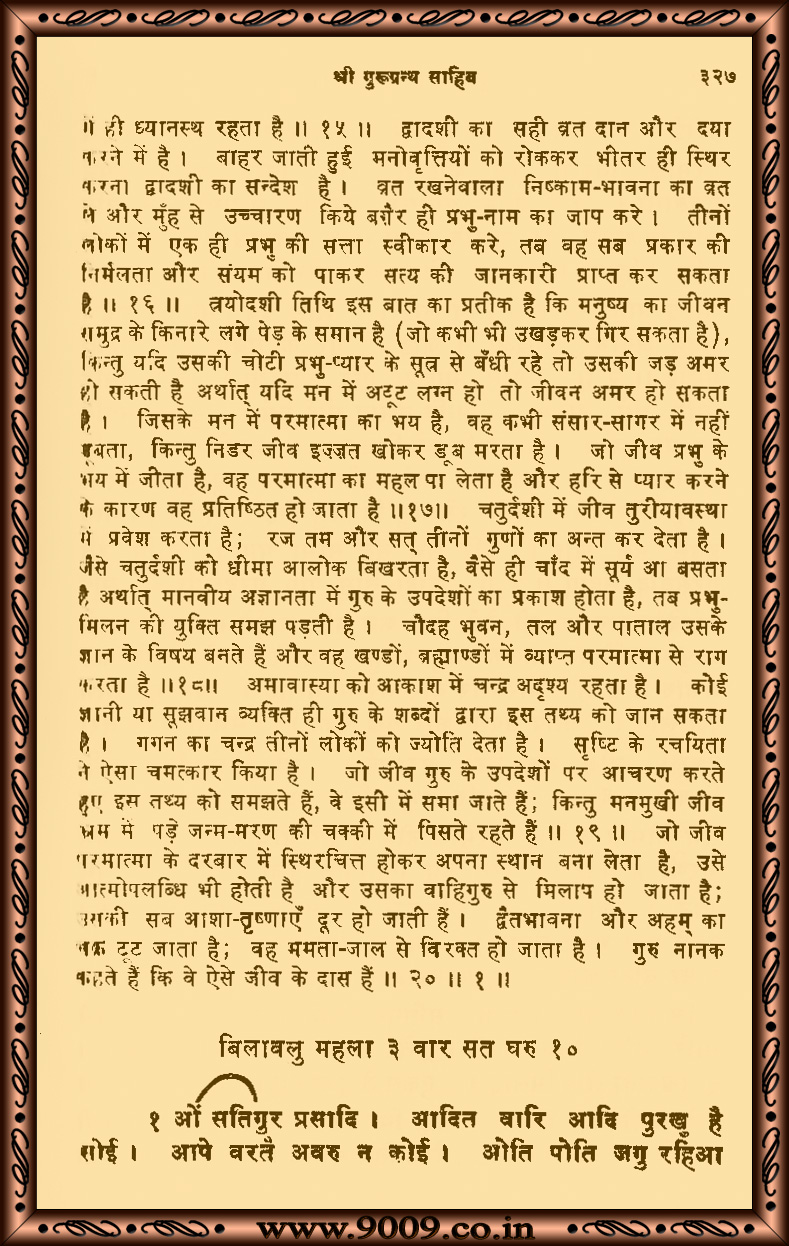 श्री गुरूग्रन्थ साहिब ३२७
में ही ध्यानस्थ रहता है ॥ १५ ॥ द्वादशी का सही व्रत दान और दया
करने में है । बाहर जाती हुई मनोवृत्तियों को रोककर भीतर ही स्थिर
करना द्वादशी का सन्देश है । व्रत रखनेवाला निष्काम-भावना का व्रत
ले और मुँह से उच्चारण किये बग़ैर ही प्रभु-नाम का जाप करे । तीनों
लोकों में एक ही प्रभु की सत्ता स्वीकार करे, तब वह सब प्रकार की
निर्मलता और संयम को पाकर सत्य की जानकारी प्राप्त कर सकता
है ॥ १६ ॥ त्रयोदशी तिथि इस बात का प्रतीक है कि मनुष्य का जीवन
समुद्र के किनारे लगे पेड़ के समान है (जो कभी भी उखड़कर गिर सकता है),
किन्तु यदि उसकी चोटी प्रभु-प्यार के सूत्र से बँधी रहे तो उसकी जड़ अमर
हो सकती है अर्थात् यदि मन में अटूट लग्न हो तो जीवन अमर हो सकता
है । जिसके मन में परमात्मा का भय है, वह कभी संसार-सागर में नहीं
डूबता, किन्तु निडर जीव इज़्ज़त खोकर डूब मरता है । जो जीव प्रभु के
भय में जीता है, वह परमात्मा का महल पा लेता है और हरि से प्यार करने
के कारण वह प्रतिष्ठित हो जाता है ॥१७॥ चतुर्दशी में जीव तुरीयावस्था
में प्रवेश करता है; रज तम और सत् तीनों गुणों का अन्त कर देता है ।
जैसे चतुर्दशी को धीमा आलोक बिखरता है, वैसे ही चाँद में सूर्य आ बसता
है अर्थात् मानवीय अज्ञानता में गुरु के उपदेशों का प्रकाश होता है, तब प्रभु-
मिलन की युक्ति समझ पड़ती है । चौदह भुवन, तल और पाताल उसके
ज्ञान के विषय बनते हैं और वह खण्डों, ब्रह्माण्डों में व्याप्त परमात्मा से राग
करता है ॥१८॥ अमावास्या को आकाश में चन्द्र अदृश्य रहता है । कोई
ज्ञानी या सूझवान व्यक्ति ही गुरु के शब्दों द्वारा इस तथ्य को जान सकता
है । गगन का चन्द्र तीनों लोकों को ज्योति देता है । सृष्टि के रचयिता
ने ऐसा चमत्कार किया है । जो जीव गुरु के उपदेशों पर आचरण करते
हुए इस तथ्य को समझते हैं, वे इसी में समा जाते हैं; किन्तु मनमुखी जीव
भ्रम में पड़े जन्म-मरण की चक्की में पिसते रहते हैं ॥ १९ ॥ जो जीव
परमात्मा के दरबार में स्थिरचित्त होकर अपना स्थान बना लेता है, उसे
आत्मोपलब्धि भी होती है और उसका वाहिगुरु से मिलाप हो जाता है;
उसकी सब आशा-तृष्णाएँ दूर हो जाती हैं । द्वैतभावना और अहम् का
चक्र टूट जाता है; वह ममता-जाल से विरक्त हो जाता है । गुरु नानक
कहते हैं कि वे ऐसे जीव के दास हैं ॥ २० ॥ १ ॥
बिलावलु महला ३ वार सत घरु १०
१ ओं सतिगुर प्रसादि । आदित वारि आदि पुरखु है
सोई । आपे वरतै अवरु न कोई । ओति पोति जगु रहिआ
www.9009.co.in